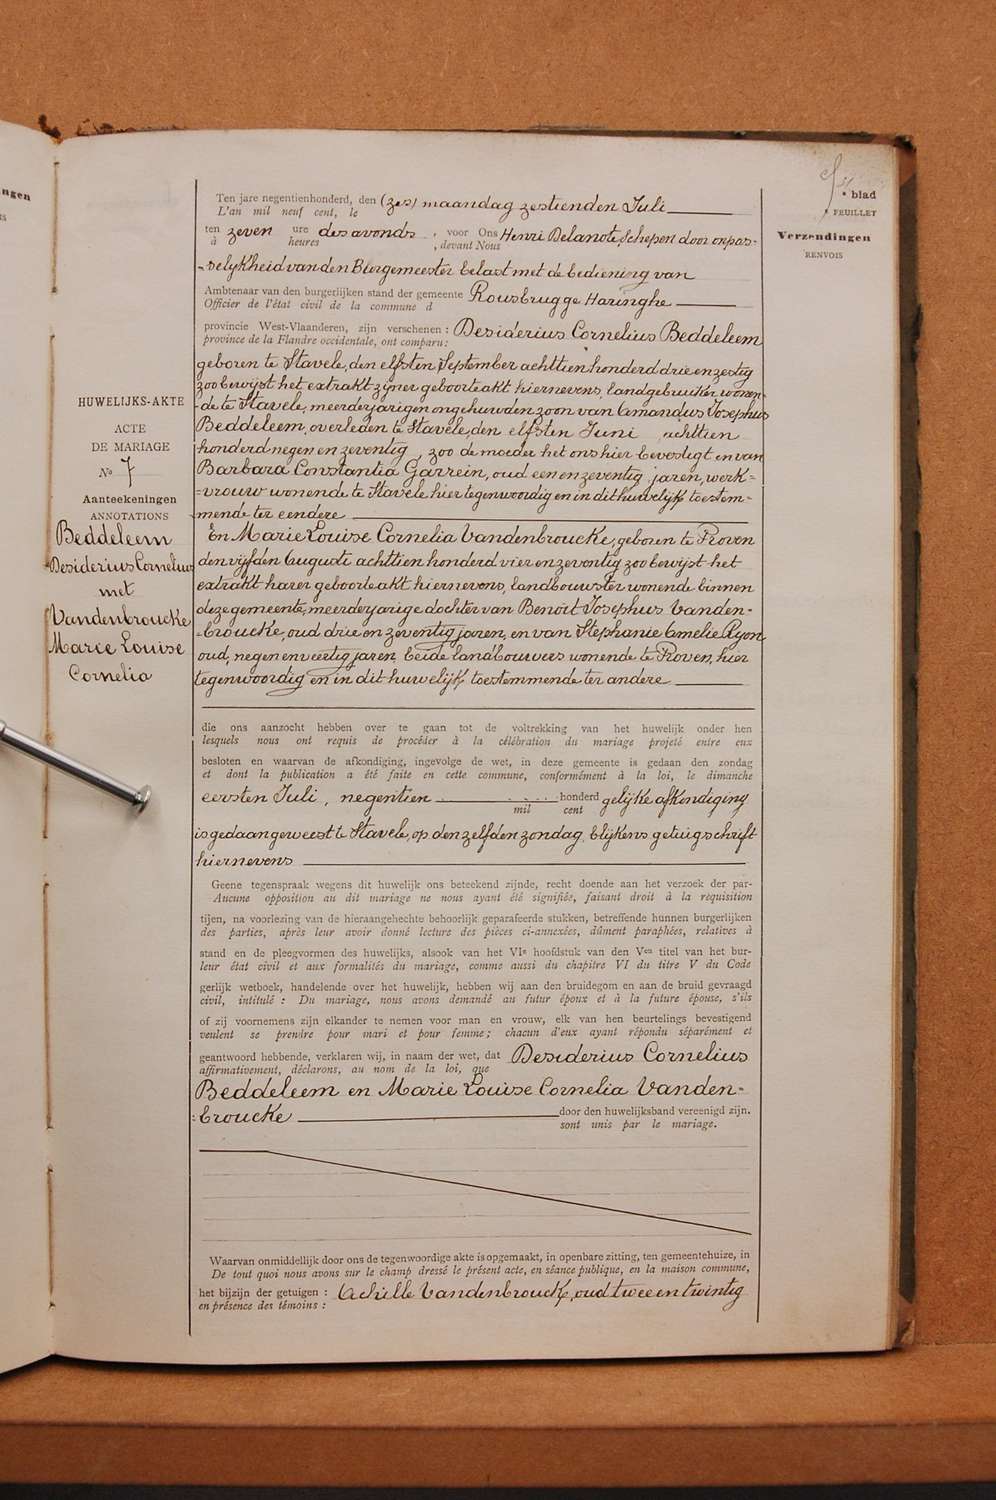 ngen
blad
FEUILLET
Verzendingen
RENVOIS
HUWELIJKS-AKTE
ACTE
DE MARIAGE
No 7
Aanteekeningen
ANNOTATIONS
Beddeleem
Desiderius Cornelius
met
Vandenbroucke
Marie Louise
Cornelia
Ten jare negentienhonderd, den (zes) maandag zestienden Juli
L'an mil neuf cent, le
ten zeven ure des avonds, voor Ons Henri Delanote, Schepen door onpas-
à heures , devant Nous
-selykheid van den Burgemeester belast met de bediening van
Ambtenaar van den burgerlijken stand der gemeente Rousbrugge Haringhe
Officier de l'état civil de la commune d
provincie West-Vlaanderen, zijn verschenen : Desiderius Cornelius Beddeleem
province de la Flandre occidentale, ont comparu:
geboren te Stavele, den elfsten September achttien honderd drie en zestig
zoo bewijst het extrakt zijner geboorteakt hiernevens, landgebruiker wonen-
-de te Stavele, meerderjarigen ongehuwden zoon van Amandus Josephus
Beddeleem, overleden te Stavele, den elfsten Juni achttien
honderd negen en zeventig, zoo de moeder het ons hier bevestigt en van
Barbara Constantia Garrein, oud een en zeventig jaren, werk=
=vrouw wonende te Stavele hier tegenwoordig en in dit huwelijk toestem-
mende ter eendere
En Marie Louise Cornelia Vandenbroucke, geboren te Proven
den vyfden Augusti achttien honderd vier en zeventig zoo bewijst het
extrakt harer geboorteakt hiernevens, landbouwster wonende binnen
deze gemeente, meerderjarige dochter van Benoit Josephus Vanden-
-broucke, oud drie en zeventig jaren, en van Stephanie Amelie Ryon
oud, negen en veertig jaren, beide landbouwers wonende te Proven, hier
tegenwoordig en in dit huwelijk toestemmende ter andere
die ons aanzocht hebben over te gaan tot de voltrekking van het huwelijk onder hen
lesquels nous ont requis de procéder à la célébration du mariage projeté entre eux
besloten en waarvan de afkondiging, ingevolge de wet, in deze gemeente is gedaan den zondag
et dont la publication a été faite en cette commune, conformément à la loi, le dimanche
eersten Juli, negentien honderd gelijke afkondiging
mil cent
is gedaan geweest te Stavele, op den zelfden zondag, blijkens getuigschrift
hiernevens
Geene tegenspraak wegens dit huwelijk ons beteekend zijnde, recht doende aan het verzoek der par-
Aucune opposition au dit mariage ne nous ayant été signifiée, faisant droit à la réquisition
tijen, na voorlezing van de hieraangehechte behoorlijk geparafeerde stukken, betreffende hunnen burgerlijken
des parties, après leur avoir donné lecture des pièces ci-annexées, dûment paraphées, relatives à
stand en de pleegvormen des huwelijks, alsook van het VIe hoofdstuk van den Ven titel van het bur-
leur état civil et aux formalités du mariage, comme aussi du chapitre VI du titre V du Code
gerlijk wetboek, handelende over het huwelijk, hebben wij aan den bruidegom en aan de bruid gevraagd
civil, intitulé : Du mariage, nous avons demandé au futur époux et à la future épouse, s'ils
of zij voornemens zijn elkander te nemen voor man en vrouw, elk van hen beurtelings bevestigend
veulent se prendre pour mari et pour femme; chacun d'eux ayant répondu séparément et
geantwoord hebbende, verklaren wij, in naam der wet, dat Desiderius Cornelius
affirmativement, déclarons, au nom de la loi, que
Beddeleem en Marie Louise Cornelia Vanden-
-broucke door den huwelijksband vereenigd zijn.
sont unis par le mariage.
Waarvan onmiddellijk door ons de tegenwoordige akte is opgemaakt, in openbare zitting, ten gemeentehuize, in
De tout quoi nous avons sur le champ dressé le présent acte, en séance publique, en la maison commune,
het bijzijn der getuigen : Achille Vandenbroucke, oud twee en twintig
en présence des témoins :